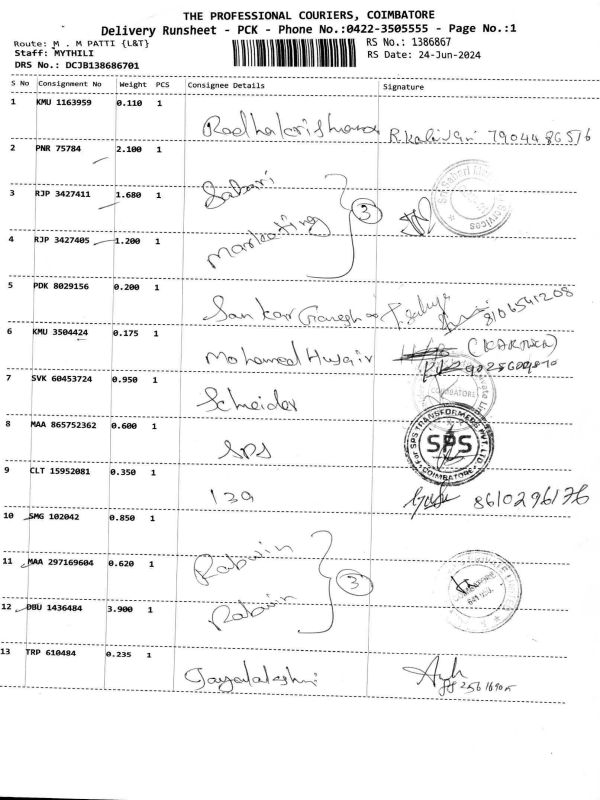 THE PROFESSIONAL COURIERS, COIMBATORE
Delivery Runsheet - PCK - Phone No.:0422-3505555 - Page No.:1
Route: M . M PATTI {L&T}
RS No.: 1386867
Staff: MYTHILI
RS Date: 24-Jun-2024
DRS No.: DCJB138686701
S No Consignment No Weight PCS Consignee Details Signature
1 KMU 1163959 0.110 1
Radhakrishnan R.Kalivani 7904486516
2 PNR 75784 2.100 1
Sabari
3 RJP 3427411 1.680 1
3
Marketing
4 RJP 3427405 1.200 1
5 PDK 8029156 0.200 1
Sankar Ganesh 8106541208
6 KMU 3504424 0.175 1
Mohamed Husair
7 SVK 60453724 0.950 1
COIMBATORE
Schneider
8 MAA 865752362 0.600 1
For SPS TRANSFORMERS PVT. LTD
SPS
COIMBATORE
SPS
9 CLT 15952081 0.350 1
139 8610296176
10 SMG 102042 0.850 1
Rabwin
11 MAA 297169604 0.620 1
3
12 DBU 1436484 3.900 1
Rabwin
13 TRP 610484 0.235 1
Jayalakshmi